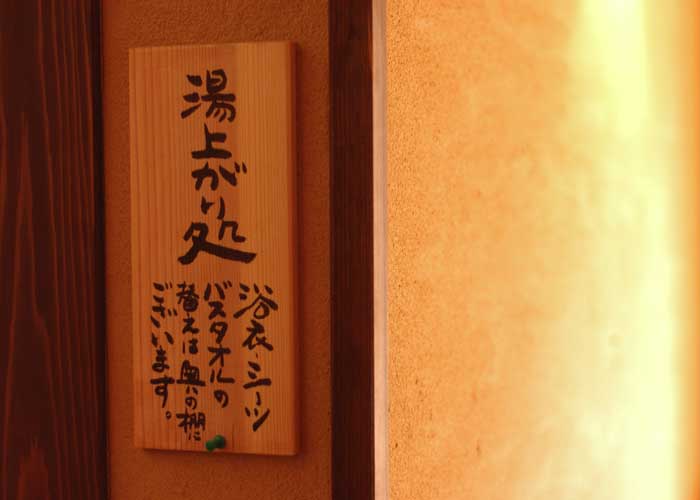 湯上がり処
浴衣・シーツ
バスタオルの
替えは奥の棚に
ございます。